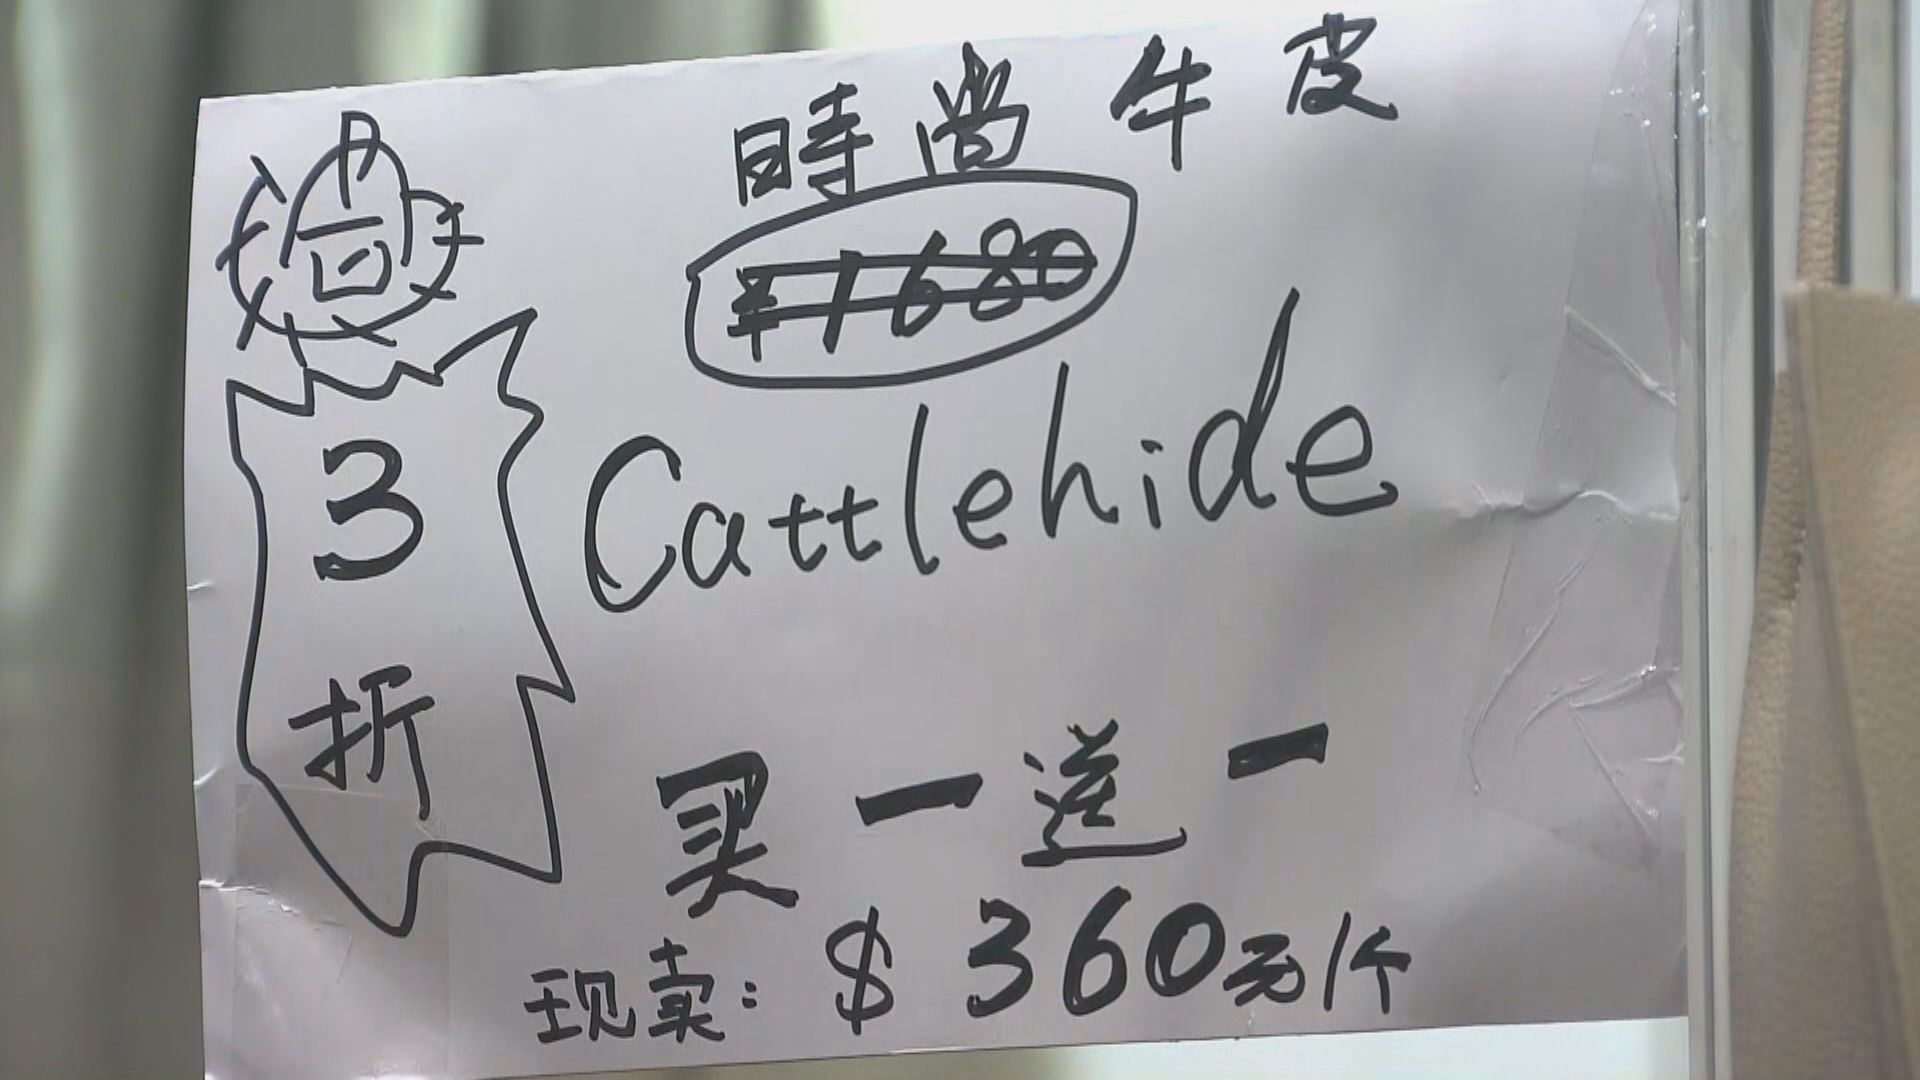 時尚牛皮
¥1680
Cattlehide
3
折
买一送一
现卖：$360元/个